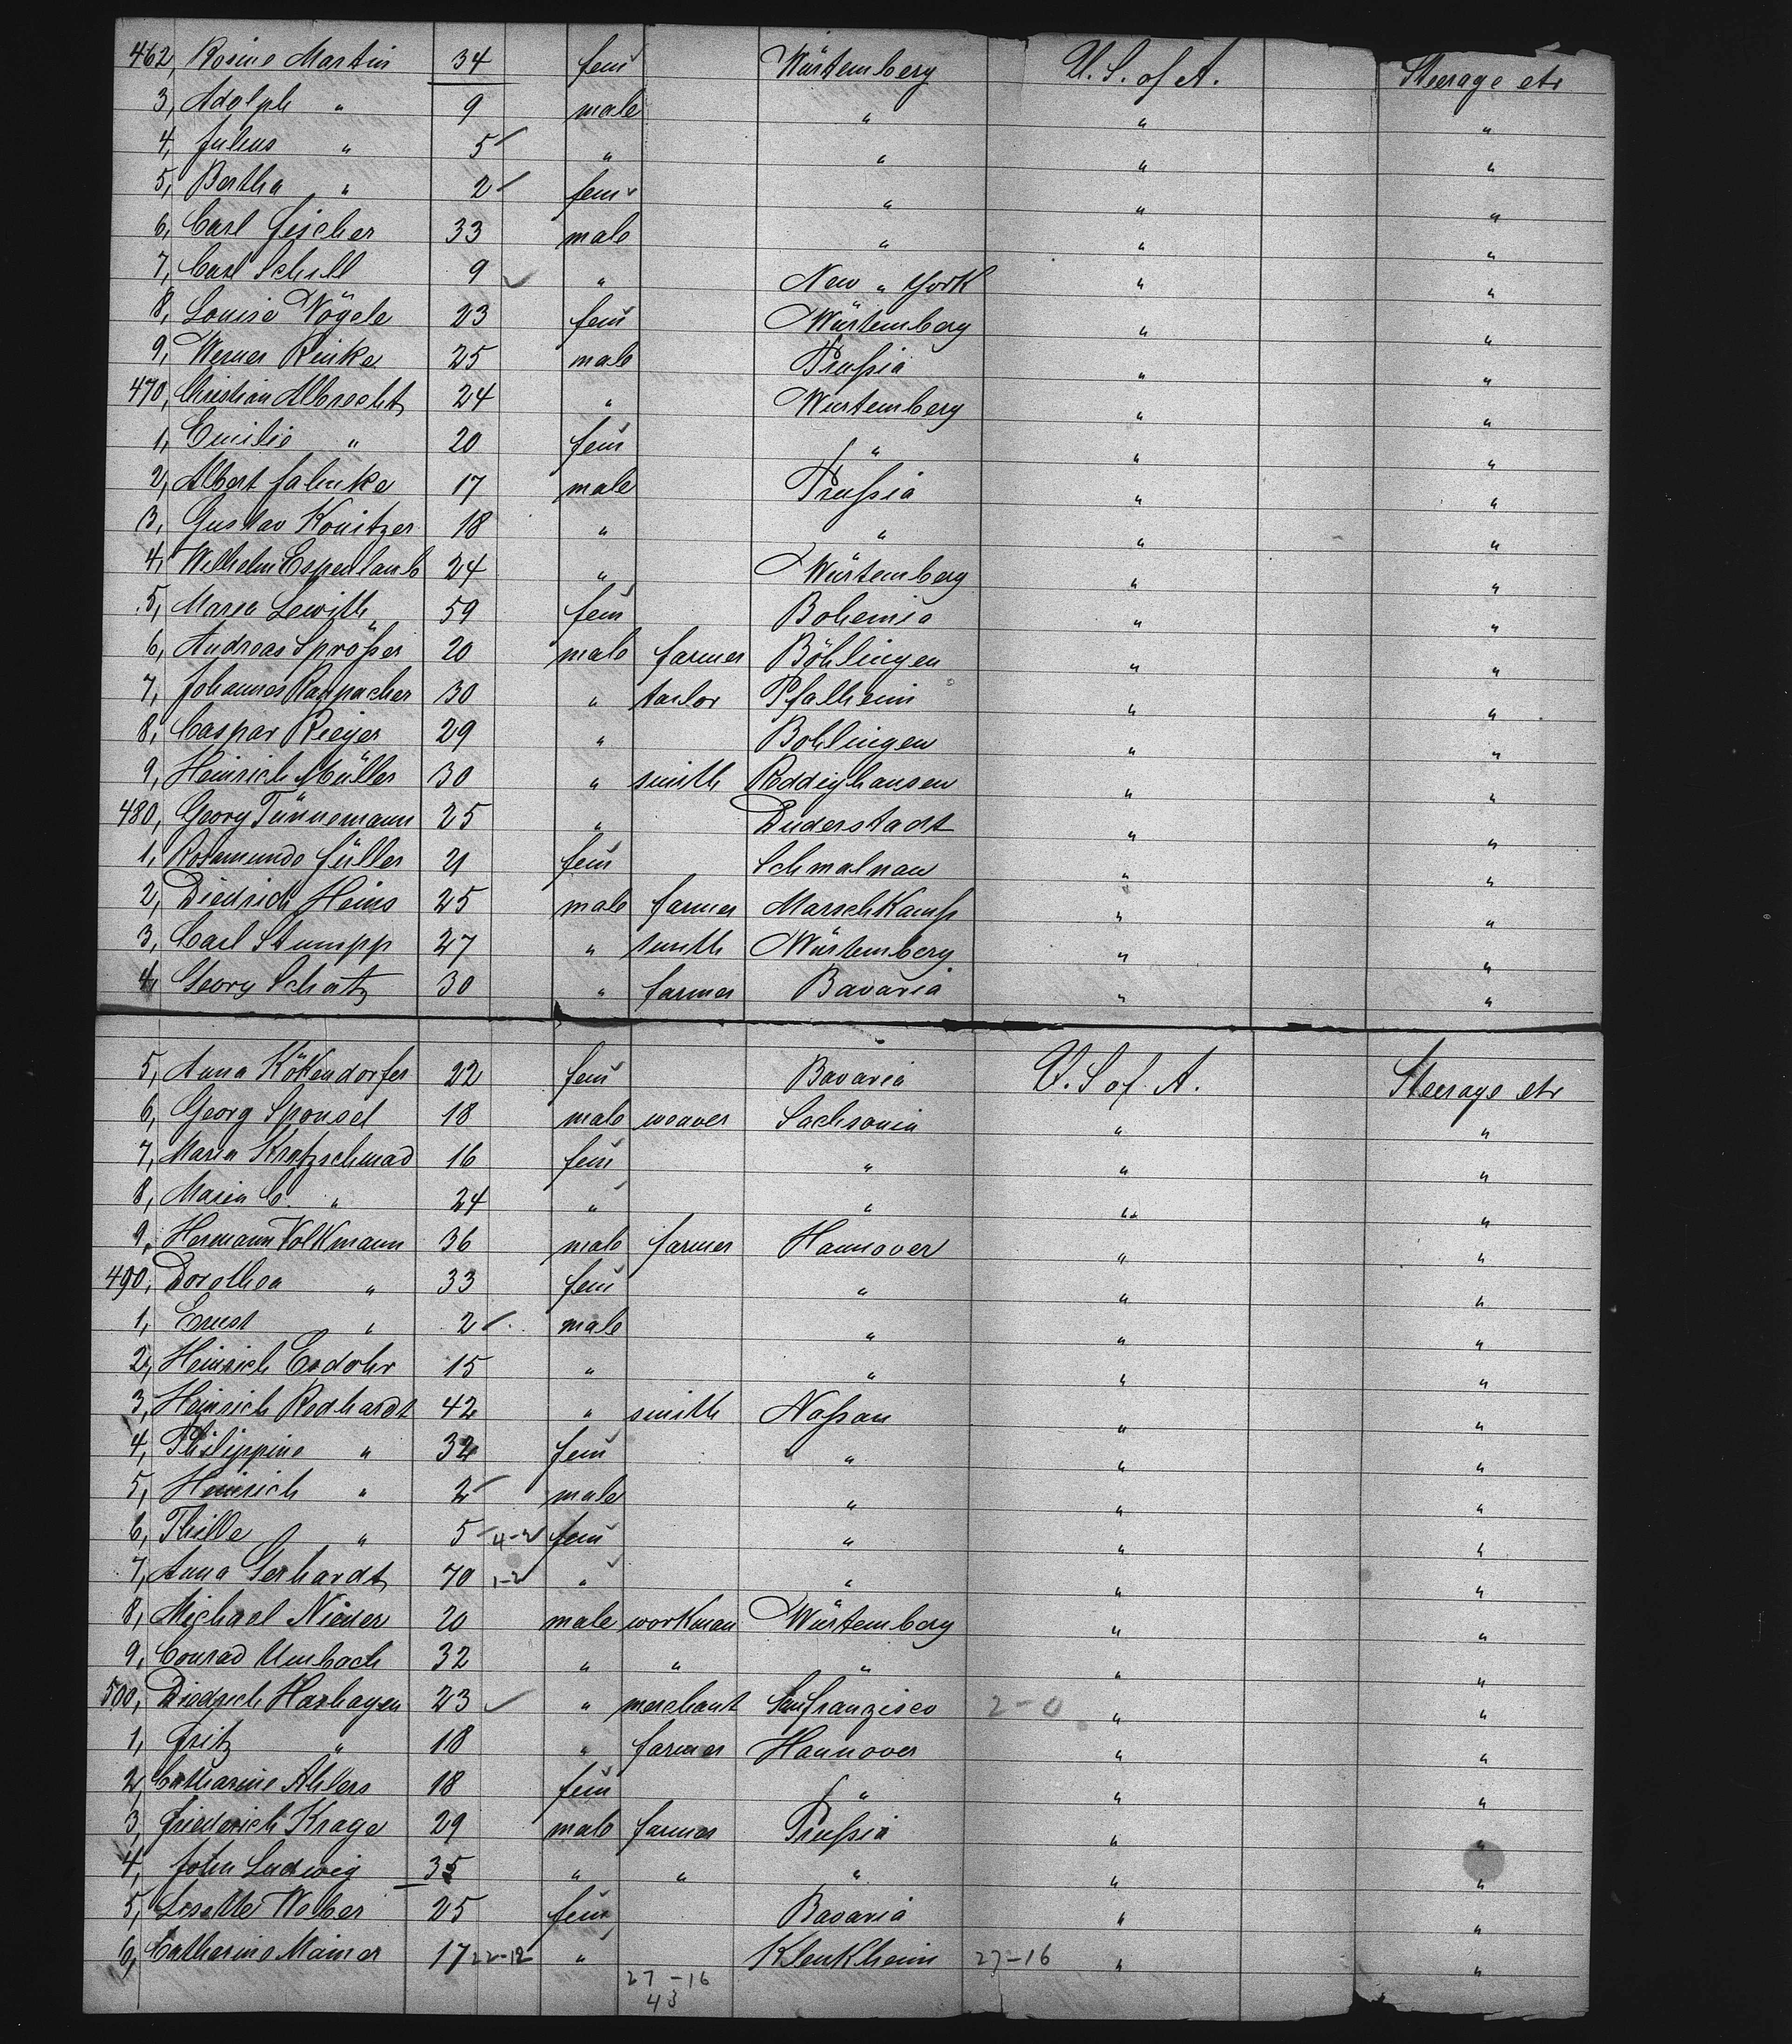 462, Rosine Martin 34 fem Würtemberg U. S. of A. Steerage etc
3, Adolph " 9 male " " "
4, Julius " 5 " " " "
5, Bertha " 2 fem " " "
6, Carl Fischer 33 male " " "
7, Carl Schill 9 " New " York " "
8, Louise Vögele 23 fem Würtemberg " "
9, Werner Rinke 25 male Prußia " "
470, Christian Albrecht 24 " Würtemberg " "
1, Emilie " 20 fem " " "
2, Albert Jahnke 17 male Prußia " "
3, Gustav Konitzer 18 " " " "
4, Wilhelm Espenlaub 24 " Würtemberg " "
5, Maria Lewith 59 fem Bohemia " "
6, Andreas Sprößer 20 male farmer Böhlingen " "
7, Johannes 30 " tailor Pfalheim " "
8, Caspar Rieger 29 " Bohlingen " "
9, Heinrich Müller 30 " smith Roddighausen " "
480, Georg Tünnemann 25 " Duderstadt " "
1, Rosamunde Füller 21 fem Schmalnau " "
2, Diedrich Heins 25 male farmer Marschkamp " "
3, Carl Stumpp 27 " smith Würtemberg " "
4, Georg Schatz 30 " farmer Bavaria " "
5, Anna Köttendorfer 22 fem Bavaria U. S of. A. Steerage etc
6, Georg Sponsel 18 male weaver Sachsonia " "
7, Maria Kratzschmad 16 fem " " "
8, Maria C. " 24 " " " "
9, Hermann Volkmann 36 male farmer Hannover " "
490, Dorothea " 33 fem " " "
1, Ernst " 2 male " " "
2, Heinrich Esdohr 15 " " " "
3, Heinrich Rodhardt 42 " smith Naßau " "
4, Philippine " 32 fem " " "
5, Heinrich " 2 male " " "
6, Thilde " 5 4-2 fem " " "
7, Anna Gerhardt 70 1-2 " " " "
8, Michael Nieder 20 male workman Würtemberg " "
9, Conrad Umbach 32 " " " " "
500, Diedrich Harhagen 23 " merchant San franzisco 2-0 " "
1, Fritz " 18 " farmer Hannover " "
2, Catharine Ahlers 18 fem " " "
3, Friederich Krage 29 male farmer Prußia " "
4, John Ludwig 35 " " " " "
5, Lisette Weber 25 fem Bavaria " "
6, Catharine Mainer 17 22-12 " Klenkheim 27-16 " "
27-16
43